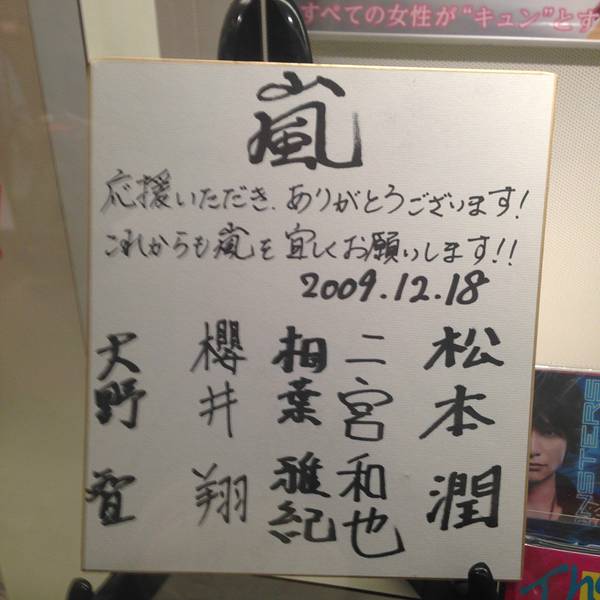 すべての女性が"キュン"とす
嵐
応援いただき、ありがとうございます!
これからも嵐を宜しくお願いします!!
2009.12.18
大野智
櫻井翔
相葉雅紀
二宮和也
松本潤
NSTERS
The